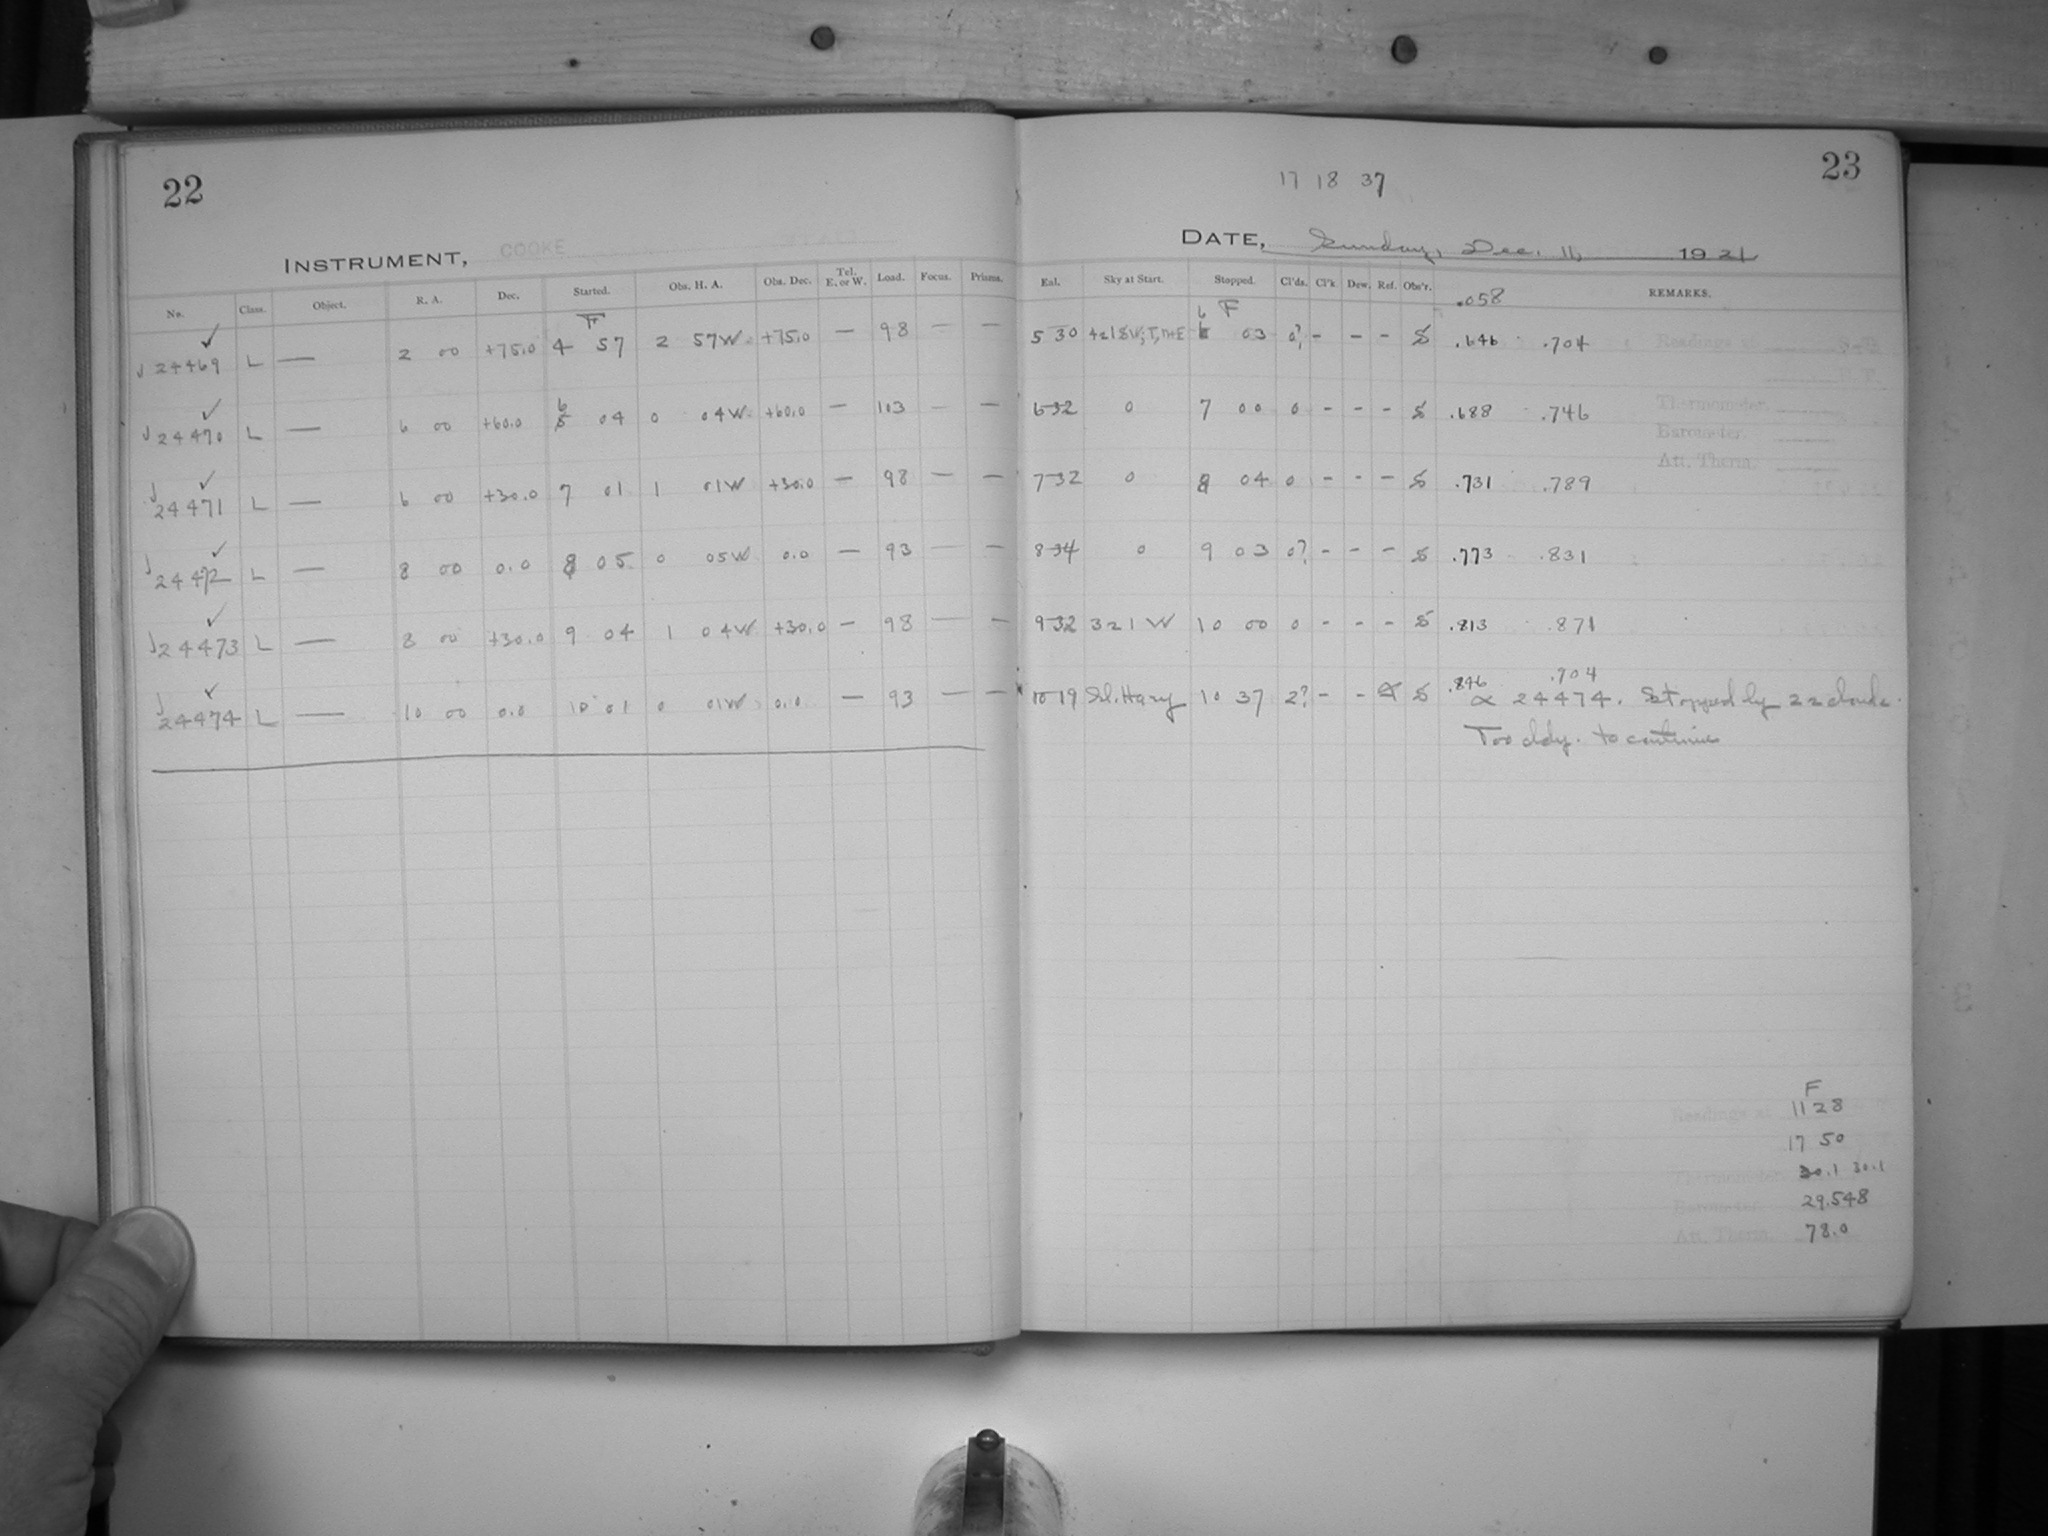 22
INSTRUMENT, COOKE
No. Class. Object. R. A. Dec. Started. Obs. H. A. Obs. Dec. Tel. E. or W. Load. Focus. Prisms.
F
√ 24469 ✓ L — 2 00 +75.0 4 57 2 57W. +75.0 — 98 — —
√ 24470 ✓ L — 6 00 +60.0 6 04 0 04W. +60.0 — 103 — —
√ 24471 ✓ L — 6 00 +30.0 7 01 1 01W +30.0 — 98 — —
√ 24472 ✓ L — 8 00 0.0 8 05 0 05W 0.0 — 93 — —
√ 24473 ✓ L — 8 00 +30.0 9 04 1 04W +30.0 — 98 — —
√ 24474 ✓ L — 10 00 0.0 10 01 0 01W 0.0 — 93 — —
23
17 18 37
DATE, Sunday, Dec. 11, 1921
Eal. Sky at Start. Stopped. Cl'ds. Cl'k Dew. Ref. Obs'r. REMARKS.
F .058
5 30 6 03 0? - - - S .646 .704
6 32 0 7 00 0 - - - S .688 .746
7 32 0 8 04 0 - - - S .731 .789
8 34 0 9 03 0? - - - S .773 .831
9 32 321W 10 00 0 - - - S .813 .871
10 19 Sl. Hazy 10 37 2? - - S .846 .704
∝ 24474. Stopped by clouds.
Too cldy. to continue
Readings at
Thermometer
Barometer.
Att. Therm.
F
Readings at 11 28
17 50
Thermometer 30.1 30.1
Barometer 29.548
Att. Therm. 78.0